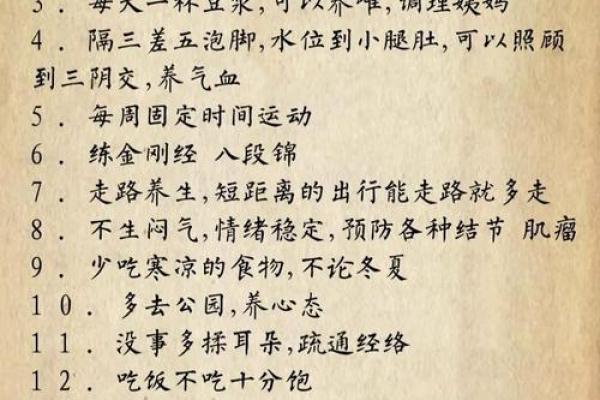 3．每天一杯豆浆,可以养雌,调理姨妈
4．隔三差五泡脚,水位到小腿肚,可以照顾
到三阴交,养气血
5．每周固定时间运动
6．练金刚经 八段锦
7．走路养生,短距离的出行能走路就多走
8．不生闷气,情绪稳定,预防各种结节 肌瘤
9．少吃寒凉的食物,不论冬夏
10．多去公园,养心态
11．没事多揉耳朵,疏通经络
12．吃饭不吃十分饱